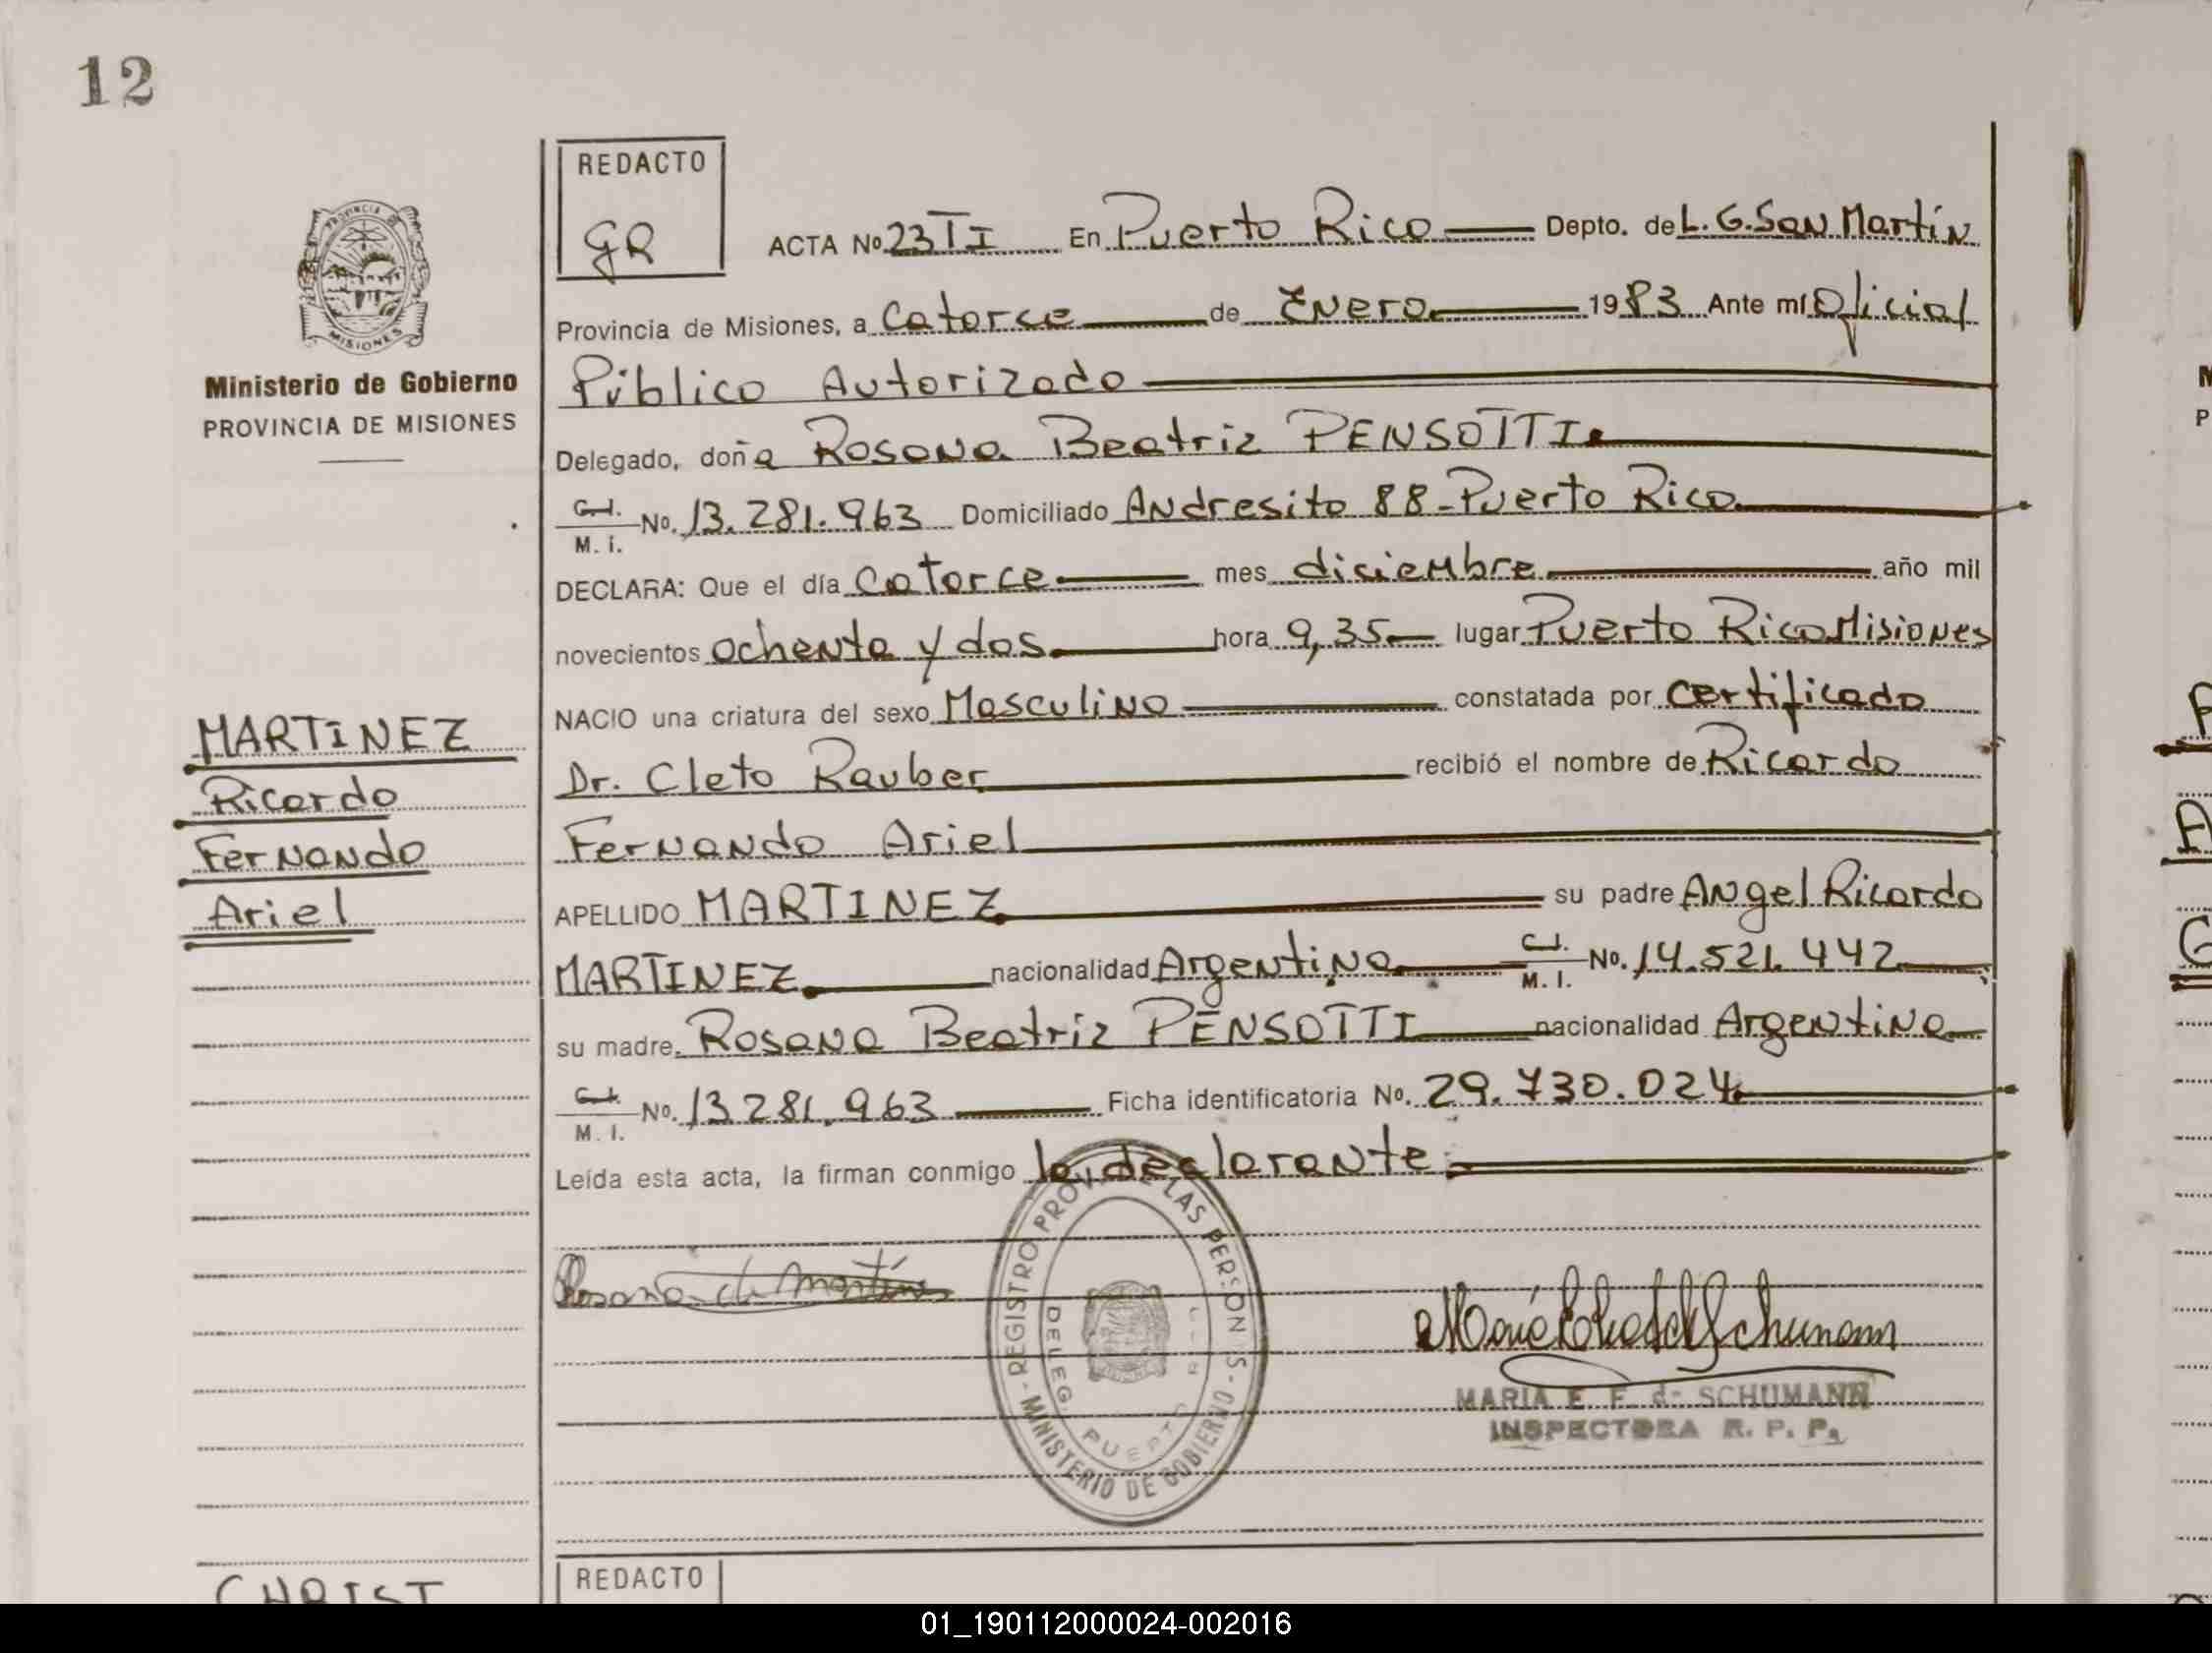 12
REDACTO
GR
ACTA No. 23 TI En Puerto Rico Depto. de L. G. San Martín
Provincia de Misiones, a Catorce de Enero 1983 Ante mí Oficial
Público Autorizado
Ministerio de Gobierno
PROVINCIA DE MISIONES
Delegado, doña Rosana Beatriz PENSOTTI
C.I. M. I. No. 13.281.963 Domiciliado Andresito 88-Puerto Rico
DECLARA: Que el día Catorce mes diciembre año mil
novecientos ochenta y dos hora 9,35 lugar Puerto Rico Misiones
NACIO una criatura del sexo Masculino constatada por certificado
Dr. Cleto Rauber recibió el nombre de Ricardo
Fernando Ariel
MARTINEZ
Ricardo
Fernando
Ariel
APELLIDO MARTINEZ su padre Angel Ricardo
MARTINEZ nacionalidad Argentina C.I. M. I. No. 14.521.442
su madre Rosana Beatriz PENSOTTI nacionalidad Argentina
C.I. M. I. No. 13281.963 Ficha identificatoria No. 29.730.024
Leída esta acta, la firman conmigo la declarante
Rosana de Martínez
REGISTRO PROV. DE LAS PERSONAS - MINISTERIO DE GOBIERNO -
DELEG. PUERTO
MARIA E. F. de SCHUMANN
INSPECTORA R. P. P.
REDACTO
CHRIST
01_190112000024-002016